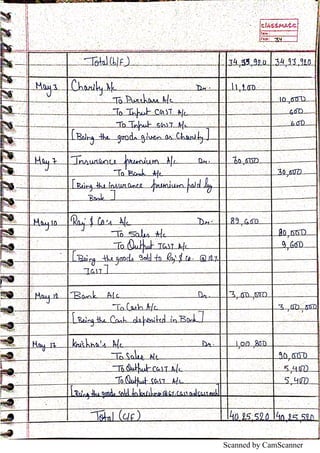 classmate
Date
Page 34
Total (b/f) 34,93,920 34,93,920
May 3 Charity A/c Dr. 11,200
To Purchase A/c 10,000
To Input CGST A/c 600
To Input SGST A/c 600
[Being the goods given as Charity]
May 7 Insurance premium A/c Dr. 30,000
To Bank A/c 30,000
[Being the insurance premium paid by
Bank]
May 10 Raj & Co's A/c Dr. 89,600
To Sales A/c 80,000
To Output IGST A/c 9,600
[Being the goods sold to Raj & co. @ 12%
IGST]
May 12 Bank A/c Dr. 3,00,000
To Cash A/c 3,00,000
[Being the Cash deposited in Bank]
Krishna's A/c Dr. 1,00,800
To Sales A/c 90,000
To Output CGST A/c 5,400
To Output SGST A/c 5,400
[Being the goods sold to krishna @ 6% CGST and SGST
Total (C/F) 40,25,520 40,25,520
Scanned by CamScanner